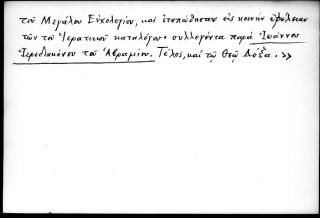 τοῦ Μεγάλου Εὐχολογίου, καὶ ἐτυπώθησαν εἰς κοινὴν ὠφέλειαν
τῶν τοῦ Ἱερατικοῦ καταλόγου· συλλεγέντα παρὰ Ἰωάννου
Ἱεροδιακόνου τοῦ Ἀβραμίου. Τέλος, καὶ τῷ Θεῷ Δόξα. »